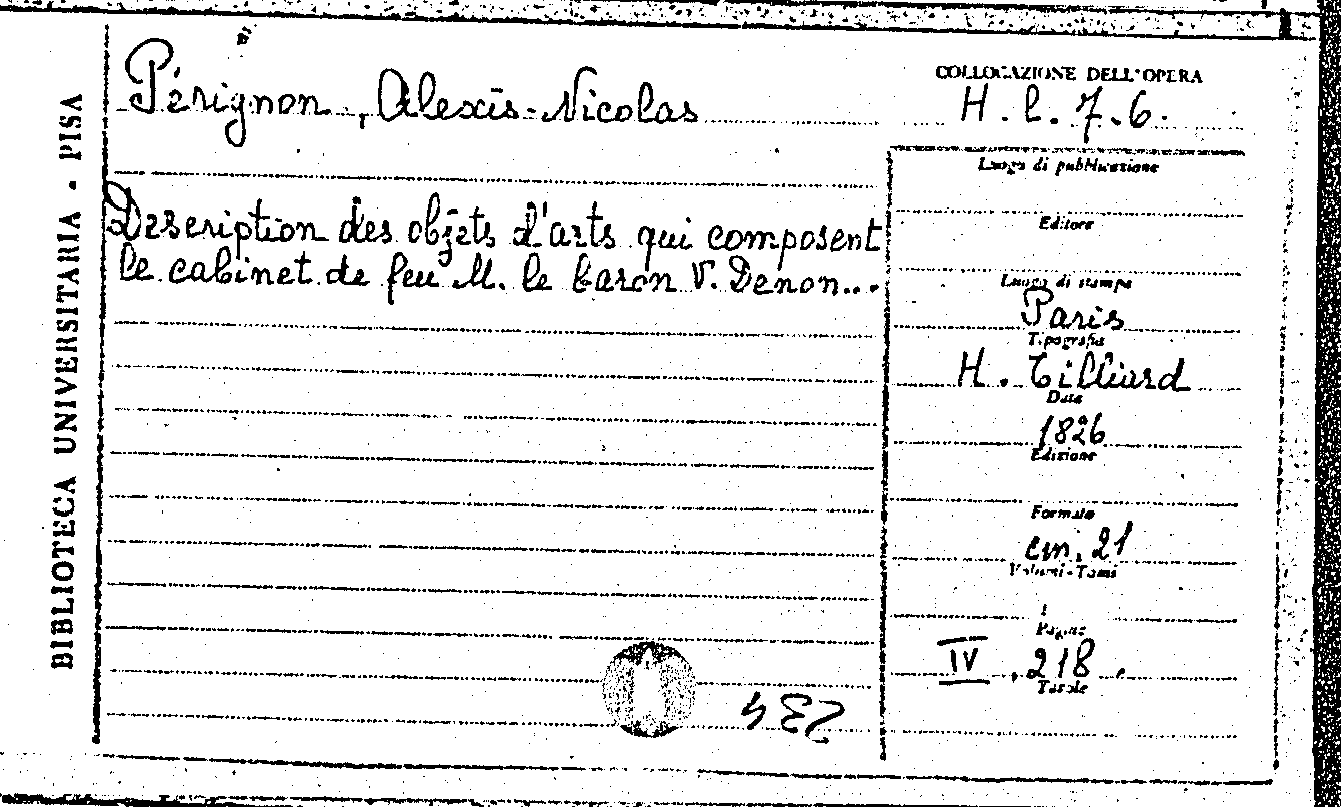 Pérignon, Alexis-Nicolas
Description des objets d'arts qui composent
le cabinet de feu M. le baron V. Denon...
BIBLIOTECA UNIVERSITARIA - PISA
COLLOCAZIONE DELL'OPERA
H. l. 7. 6.
Luogo di pubblicazione
Editore
Luogo di stampa
Paris
Tipografia
H. Tilliard
Data
1826
Edizione
Formato
cm. 21
Volumi-Tomi
Pagine
IV, 218.
Tavole